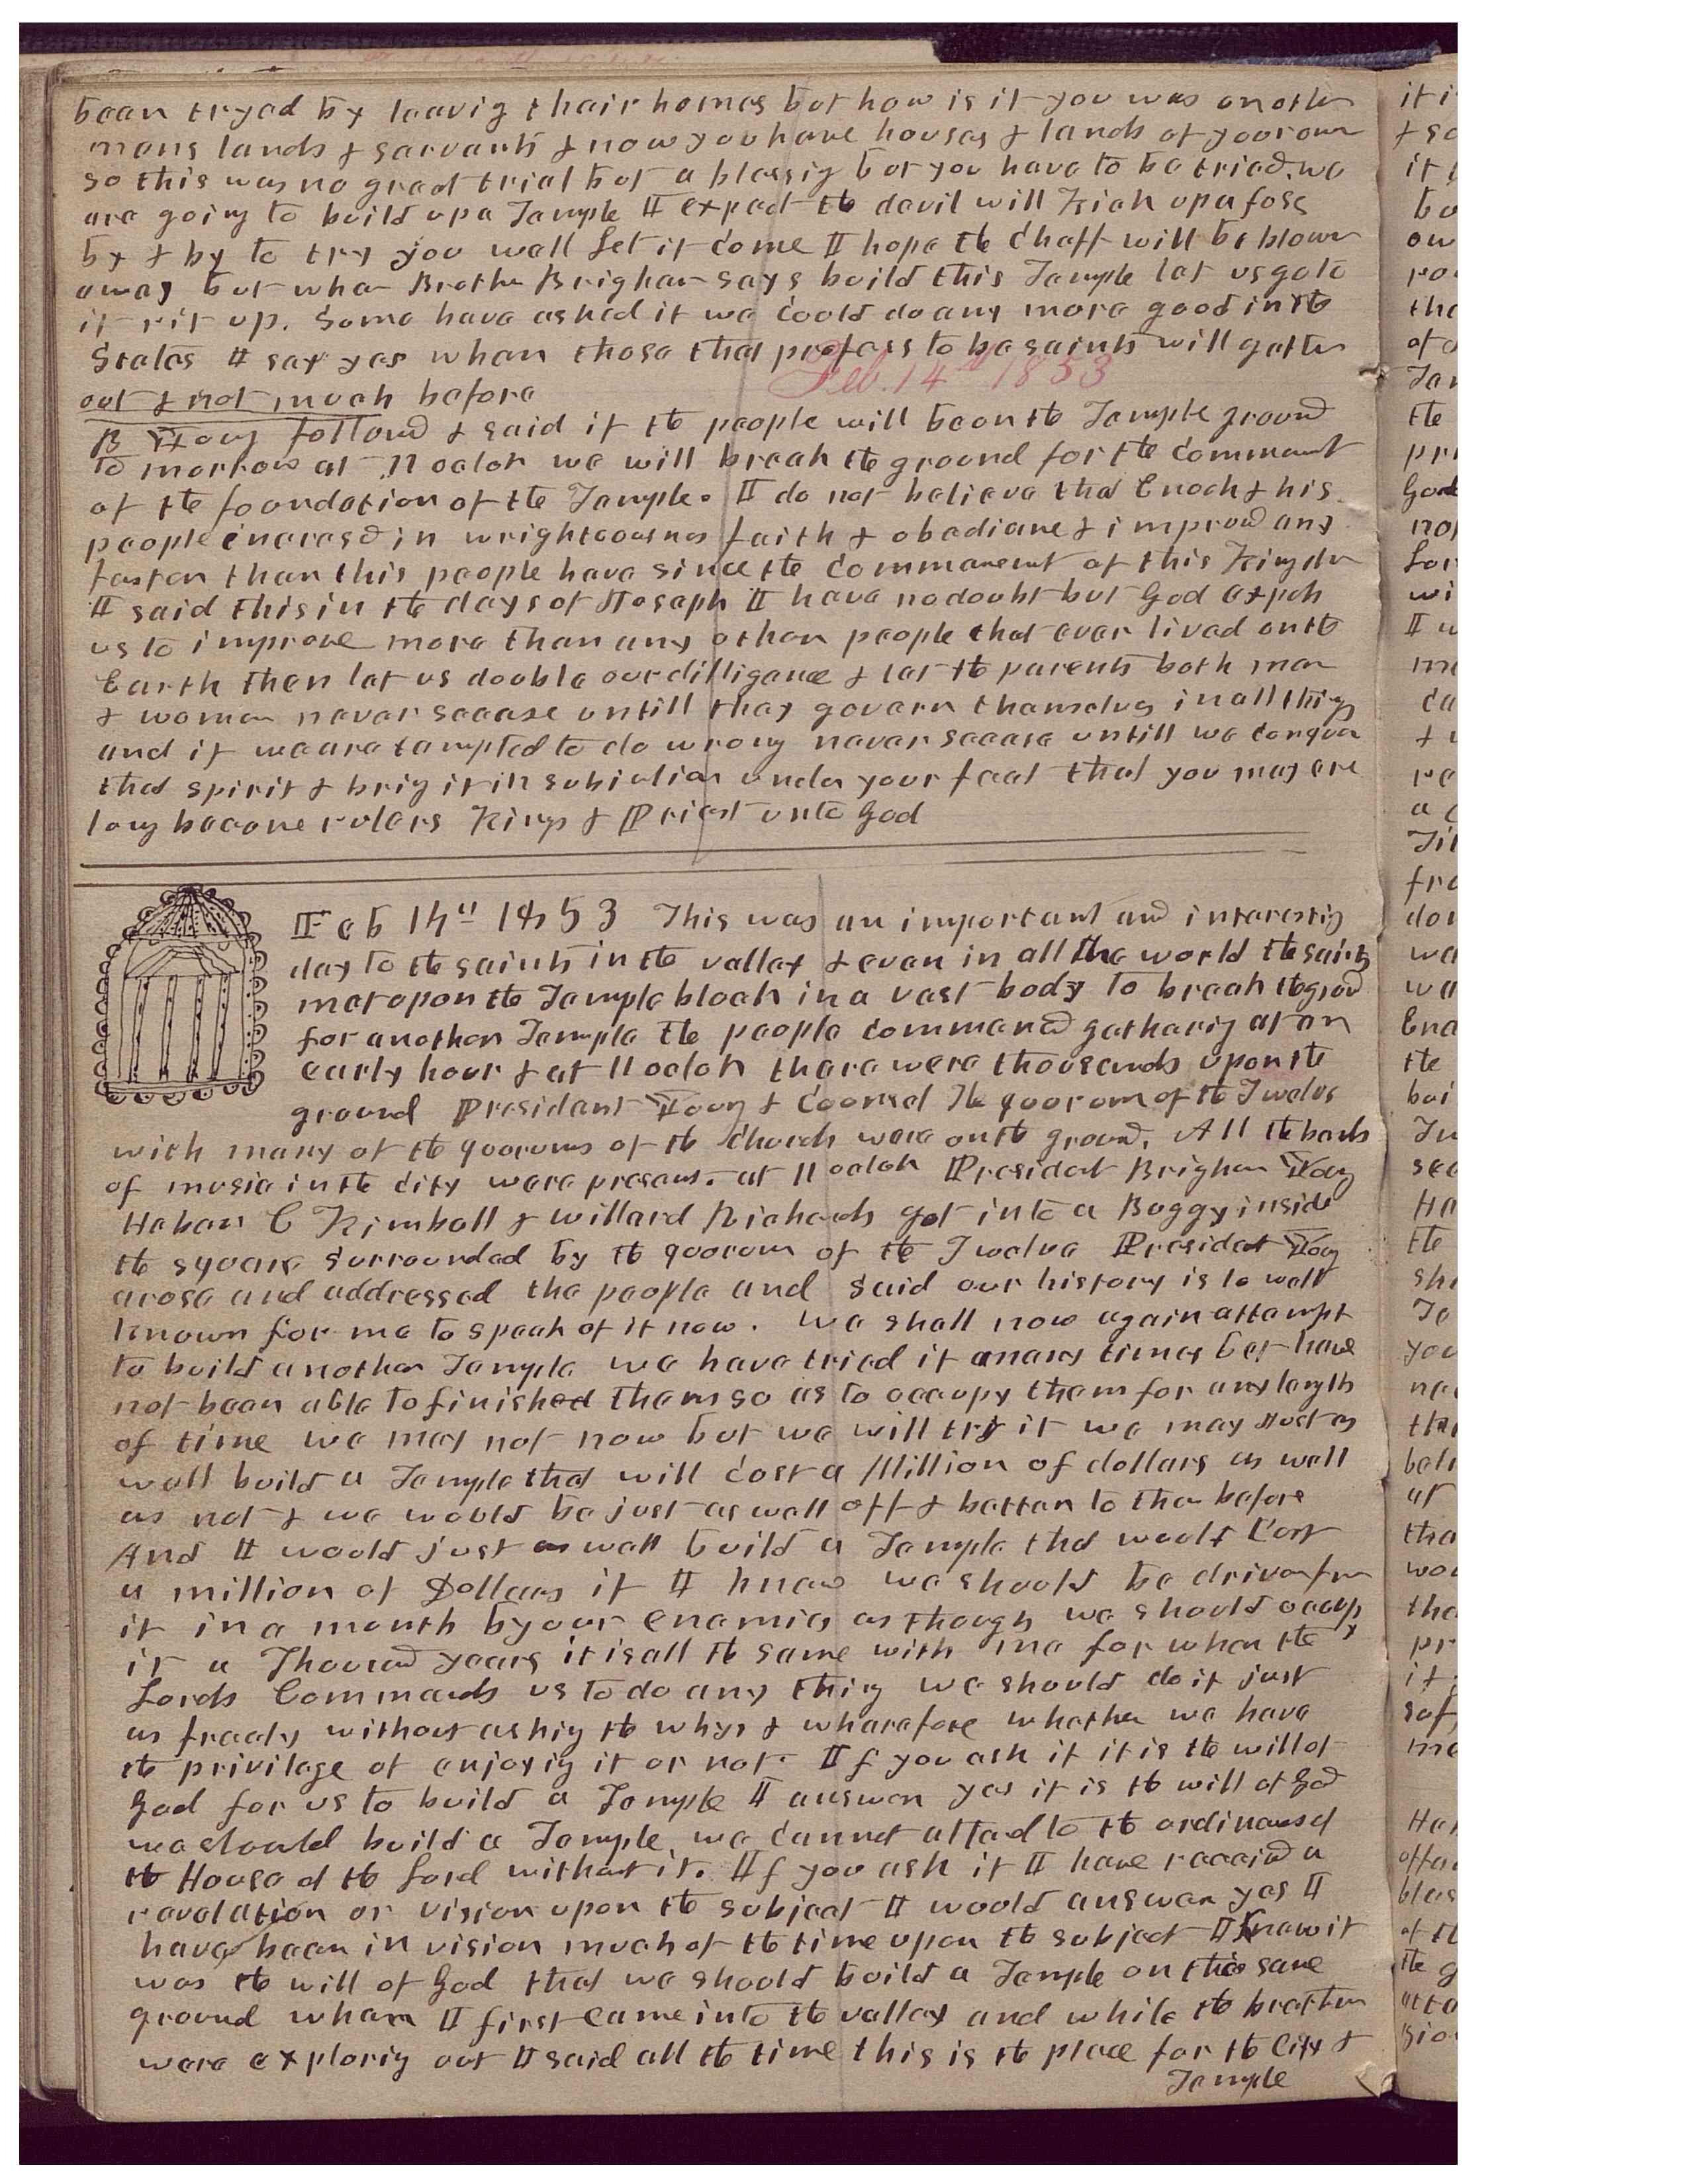 been tryed by leavig thair homes but how is it you was on other
mans lands & sarvants & now you have houses & lands of your own
so this was no great trial but a blessig but you have to be tried. we
are going to build up a Temple I expect the devil will Kick up a foss
by & by to try you well Let it come I hope the Chaff will be blown
away but when Brother Brigham says build this Temple let us go to
it rit up. Some have asked if we Could do any more good in the
States I say yes when those that profess to be saints will gather
out & not much before
Feb. 14th 1853
B Young followd & said if the people will be on the Temple ground
to morrow at 11 oclok we will break the ground for the Commenmt
of the foundation of the Temple. I do not believe that Enoch & his
people incresd in wrighteousness faith & obediance & improvd any
faster than this people have since the Commencment of this Kingdom
I said this in the days of Joseph I have no doubt but God expets
us to improve more than any other people that ever lived on the
Earth then let us double our dilligence & let the parents both men
& women never seease untill they govern themselves in all things
and if we are tempted to do wrong never seease untill we conquer
that spirit & brig it in subjection under your feet that you may ere
long become rulers Kings & Priest unto God
Feb 14" 1853 This was an important and interestig
day to the saints in the valley & even in all the world the saints
met upon the Temple block in a vast body to break the ground
for another Temple the people commencd gatherig at an
early hour & at 11 oclok there were thousands upon the
ground President Young & Councel The quorom of the Twelve
with many of the quorums of the Church were on the ground. All the bands
of music in the City were present. at 11 oclok President Brigham Young
Heber C Kimball & Willard Richards got into a Buggy inside
the square surrounded by the quorum of the Twelve President Young
arose and addressed the people and said our history is to well
known for me to speak of it now. We shall now again attempt
to build another Temple we have tried it many times but have
not been able to finished them so as to occupy them for any length
of time we may not now but we will try it we may just as
well build a Temple that will cost a Million of dollars as well
as not & we would be just as well off & better to then before
And I would just as well build a Temple that would Cost
a million of Dollars if I knew we should be driven from
it in a month by our enemies as though we should occupy
it a Thousand years it is all the same with me for when the
Lords Commands us to do any thing we should do it just
as freely without askig the whys & wherefore whether we have
the privilege of enjoyig it or not. If you ask if it is the will of
God for us to build a Temple I answer yes it is the will of God
we should build a Temple we cannot attend to the ordinances of
the House of the Lord without it. If you ask if I have receivd a
revelation or vision upon the subject I would answer yes I
have been in vision much of the time upon the subject I knew it
was the will of God that we should build a Temple on this same
ground when I first came into the valley and while the brethren
were explorig out I said all the time this is the place for the City &
Temple